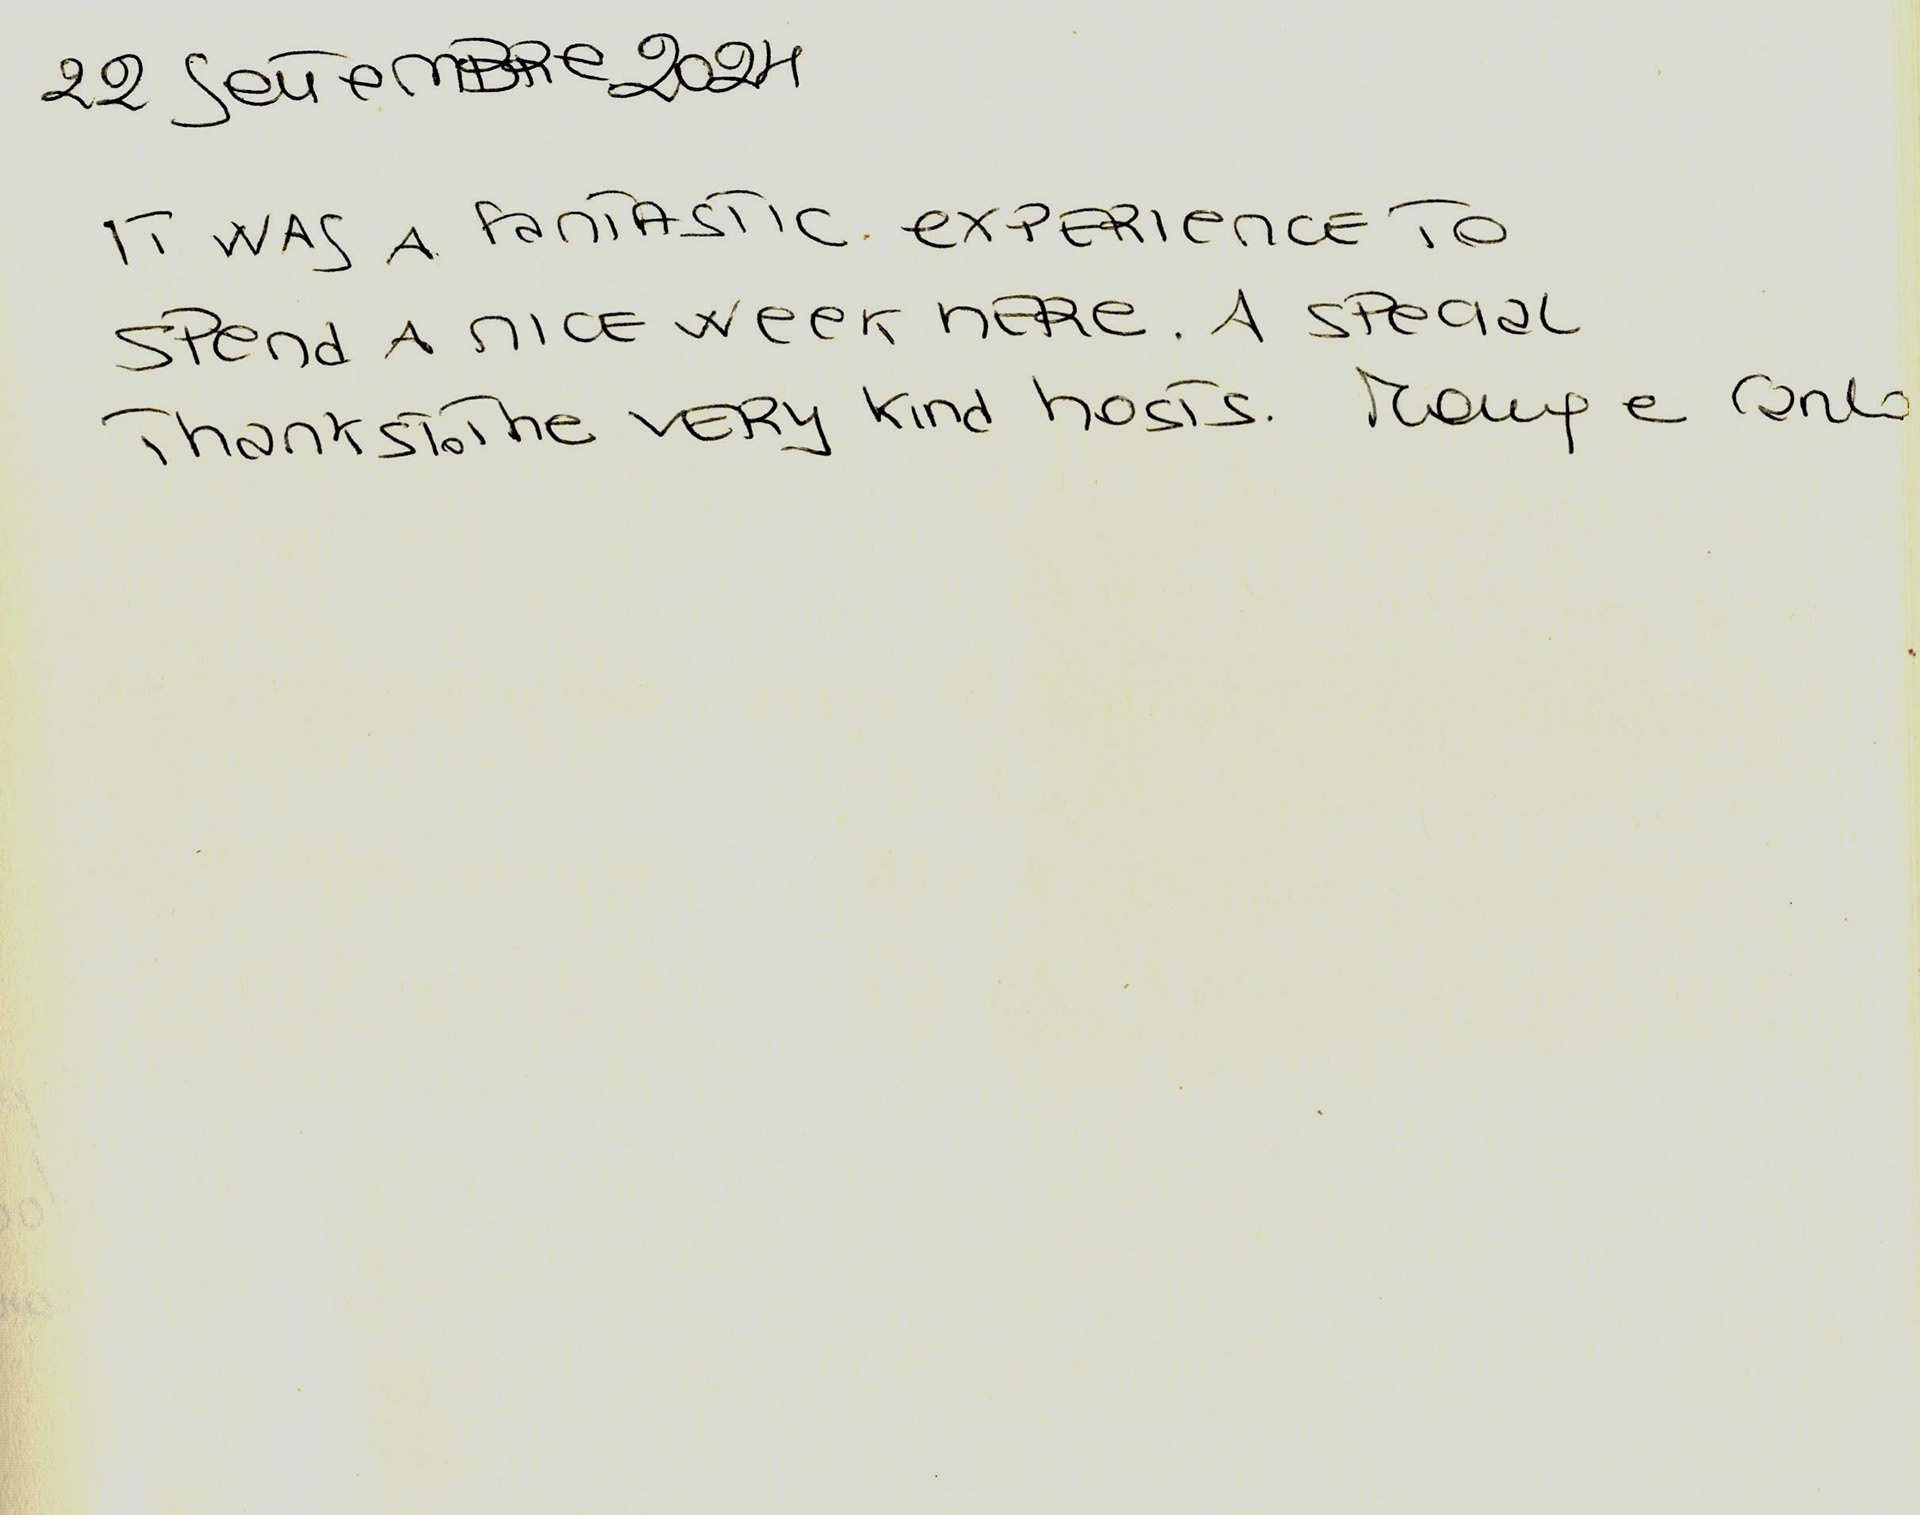 22 Settembre 2024
IT WAS A fantastic experience to
spend a nice week here. A special
Thanks to The very kind hosts. e Carlo